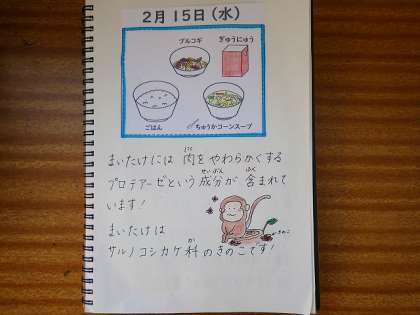 2月15日(水)
プルコギ
ぎゅうにゅう
ごはん
ちゅうかコーンスープ
まいたけには 肉をやわらかくする
プロテアーゼという成分が 含まれて
います!
まいたけは
サルノコシカケ科のきのこです!